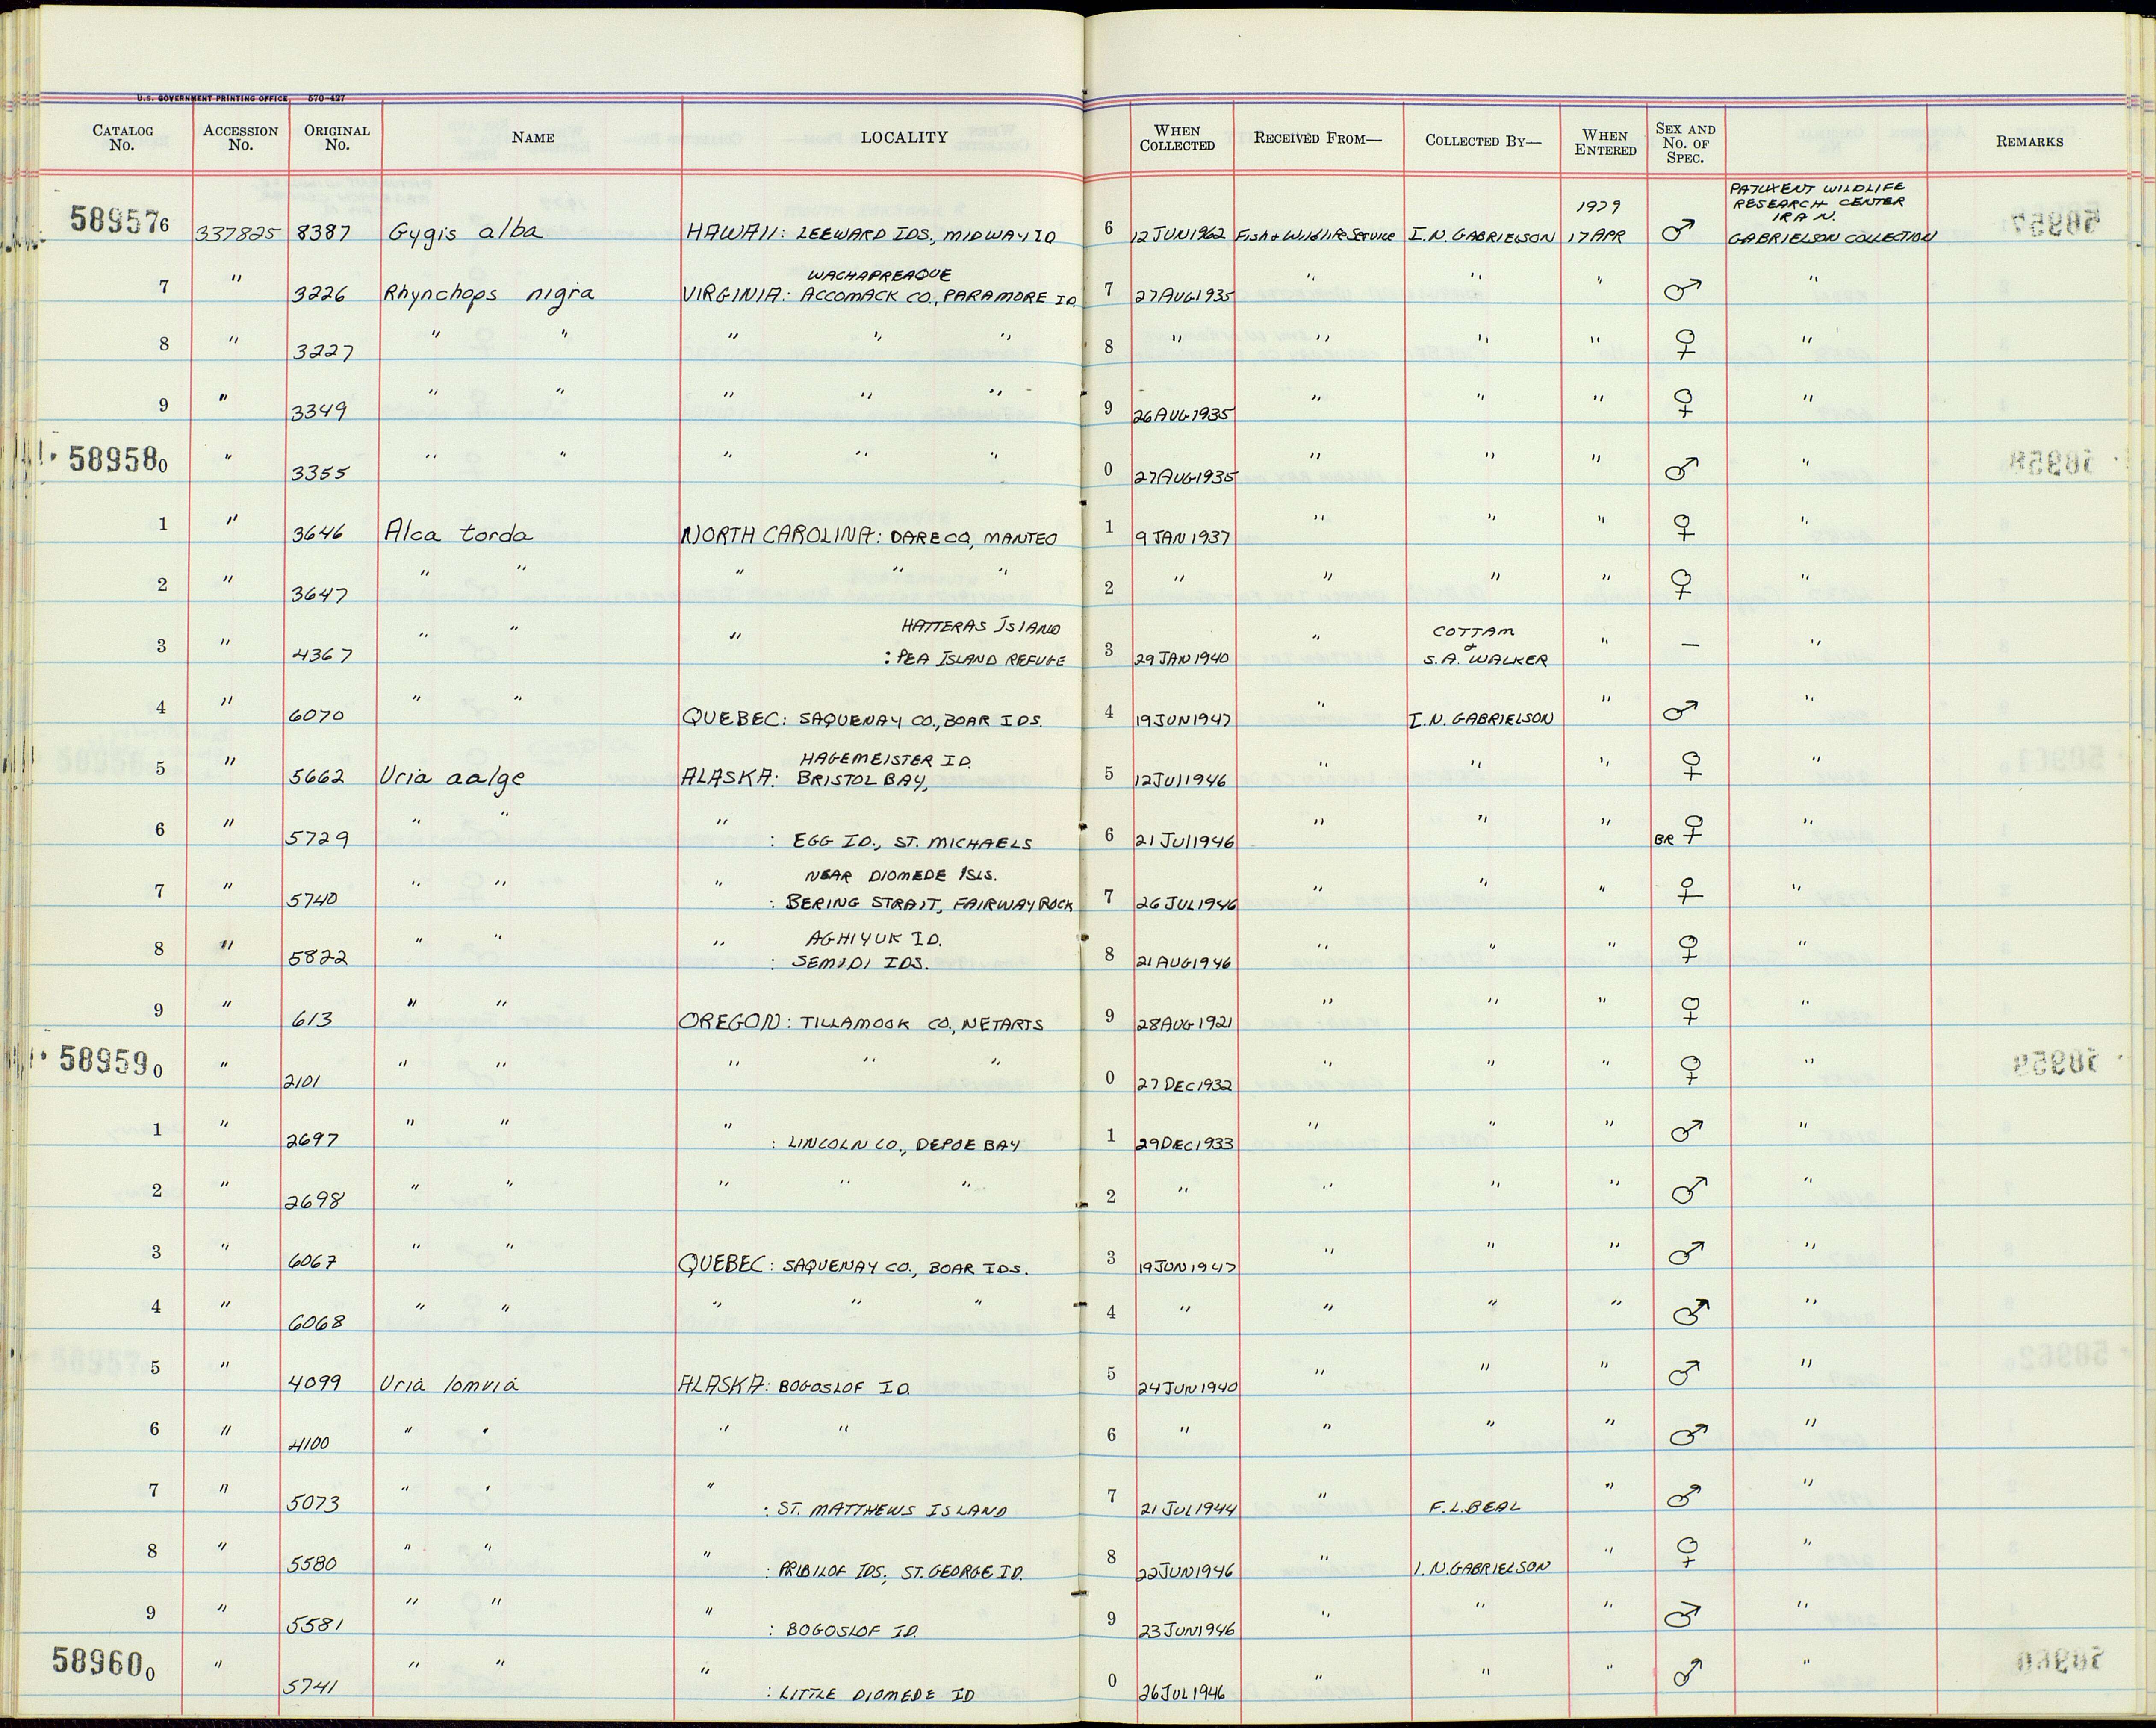 U.S. GOVERNMENT PRINTING OFFICE 570-427
CATALOG No. ACCESSION No. ORIGINAL No. NAME LOCALITY WHEN COLLECTED RECEIVED FROM— COLLECTED BY— WHEN ENTERED SEX AND No. OF SPEC. REMARKS
PATUXENT WILDLIFE
RESEARCH CENTER
1979 IRA N.
589576 337825 8387 Gygis alba HAWAII: LEEWARD IDS., MIDWAY ID 6 12 JUN 1962 Fish & Wildlife Service I.N. GABRIELSON 17 APR ♂ GABRIELSON COLLECTION
WACHAPREAQUE
7 " 3226 Rhynchops nigra VIRGINIA: ACCOMACK CO., PARAMORE ID. 7 27 AUG 1935 " " " ♂ "
8 " 3227 " " " " " 8 " " " " ♀ "
9 " 3349 " " " " " 9 26 AUG 1935 " " " ♀ "
589580 " 3355 " " " " " 0 27 AUG 1935 " " " ♂ "
1 " 3646 Alca torda NORTH CAROLINA: DARE CO, MANTEO 1 9 JAN 1937 " " " ♀ "
2 " 3647 " " " " " 2 " " " " ♀ "
HATTERAS ISLAND COTTAM
3 " 4367 " " " : PEA ISLAND REFUGE 3 29 JAN 1940 " & S.A. WALKER " — "
4 " 6070 " " QUEBEC: SAQUENAY CO., BOAR IDS. 4 19 JUN 1947 " I.N. GABRIELSON " ♂ "
HAGEMEISTER ID.
5 " 5662 Uria aalge ALASKA: BRISTOL BAY, 5 12 JUl 1946 " " " ♀ "
6 " 5729 " " " : EGG ID., ST. MICHAELS 6 21 JUl 1946 " " " BR ♀ "
NEAR DIOMEDE ISLS.
7 " 5740 " " " : BERING STRAIT, FAIRWAY ROCK 7 26 JUL 1946 " " " ♀ "
AGHIYUK ID.
8 " 5822 " " " : SEMIDI IDS. 8 21 AUG 1946 " " " ♀ "
9 " 613 " " OREGON: TILLAMOOK CO., NETARTS 9 28 AUG 1921 " " " ♀ "
589590 " 2101 " " " " " 0 27 DEC 1932 " " " ♀ "
1 " 2697 " " " : LINCOLN CO., DEPOE BAY 1 29 DEC 1933 " " " ♂ "
2 " 2698 " " " " " 2 " " " " ♂ "
3 " 6067 " " QUEBEC: SAQUENAY CO., BOAR IDS. 3 19 JUN 1947 " " " ♂ "
4 " 6068 " " " " " 4 " " " " ♂ "
5 " 4099 Uria lomvia ALASKA: BOGOSLOF ID. 5 24 JUN 1940 " " " ♂ "
6 " 4100 " " " " 6 " " " " ♂ "
7 " 5073 " " " : ST. MATTHEWS ISLAND 7 21 JUL 1944 " F.L. BEAL " ♂ "
8 " 5580 " " " : PRIBILOF IDS, ST. GEORGE ID. 8 22 JUN 1946 " I.N. GABRIELSON " ♀ "
9 " 5581 " " " : BOGOSLOF ID. 9 23 JUN 1946 " " " ♂ "
589600 " 5741 " " " : LITTLE DIOMEDE ID 0 26 JUL 1946 " " " ♂ "